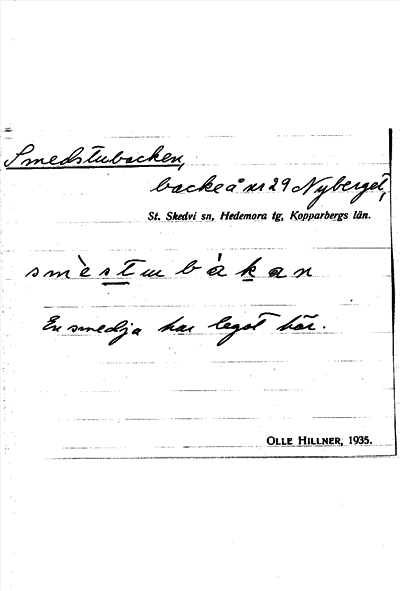 Smedstubacken,
backe å nr 29 Nyberget,
St. Skedvi sn, Hedemora tg, Kopparbergs län.
smèstu bàkan
En smedja har legat här.
OLLE HILLNER, 1935.